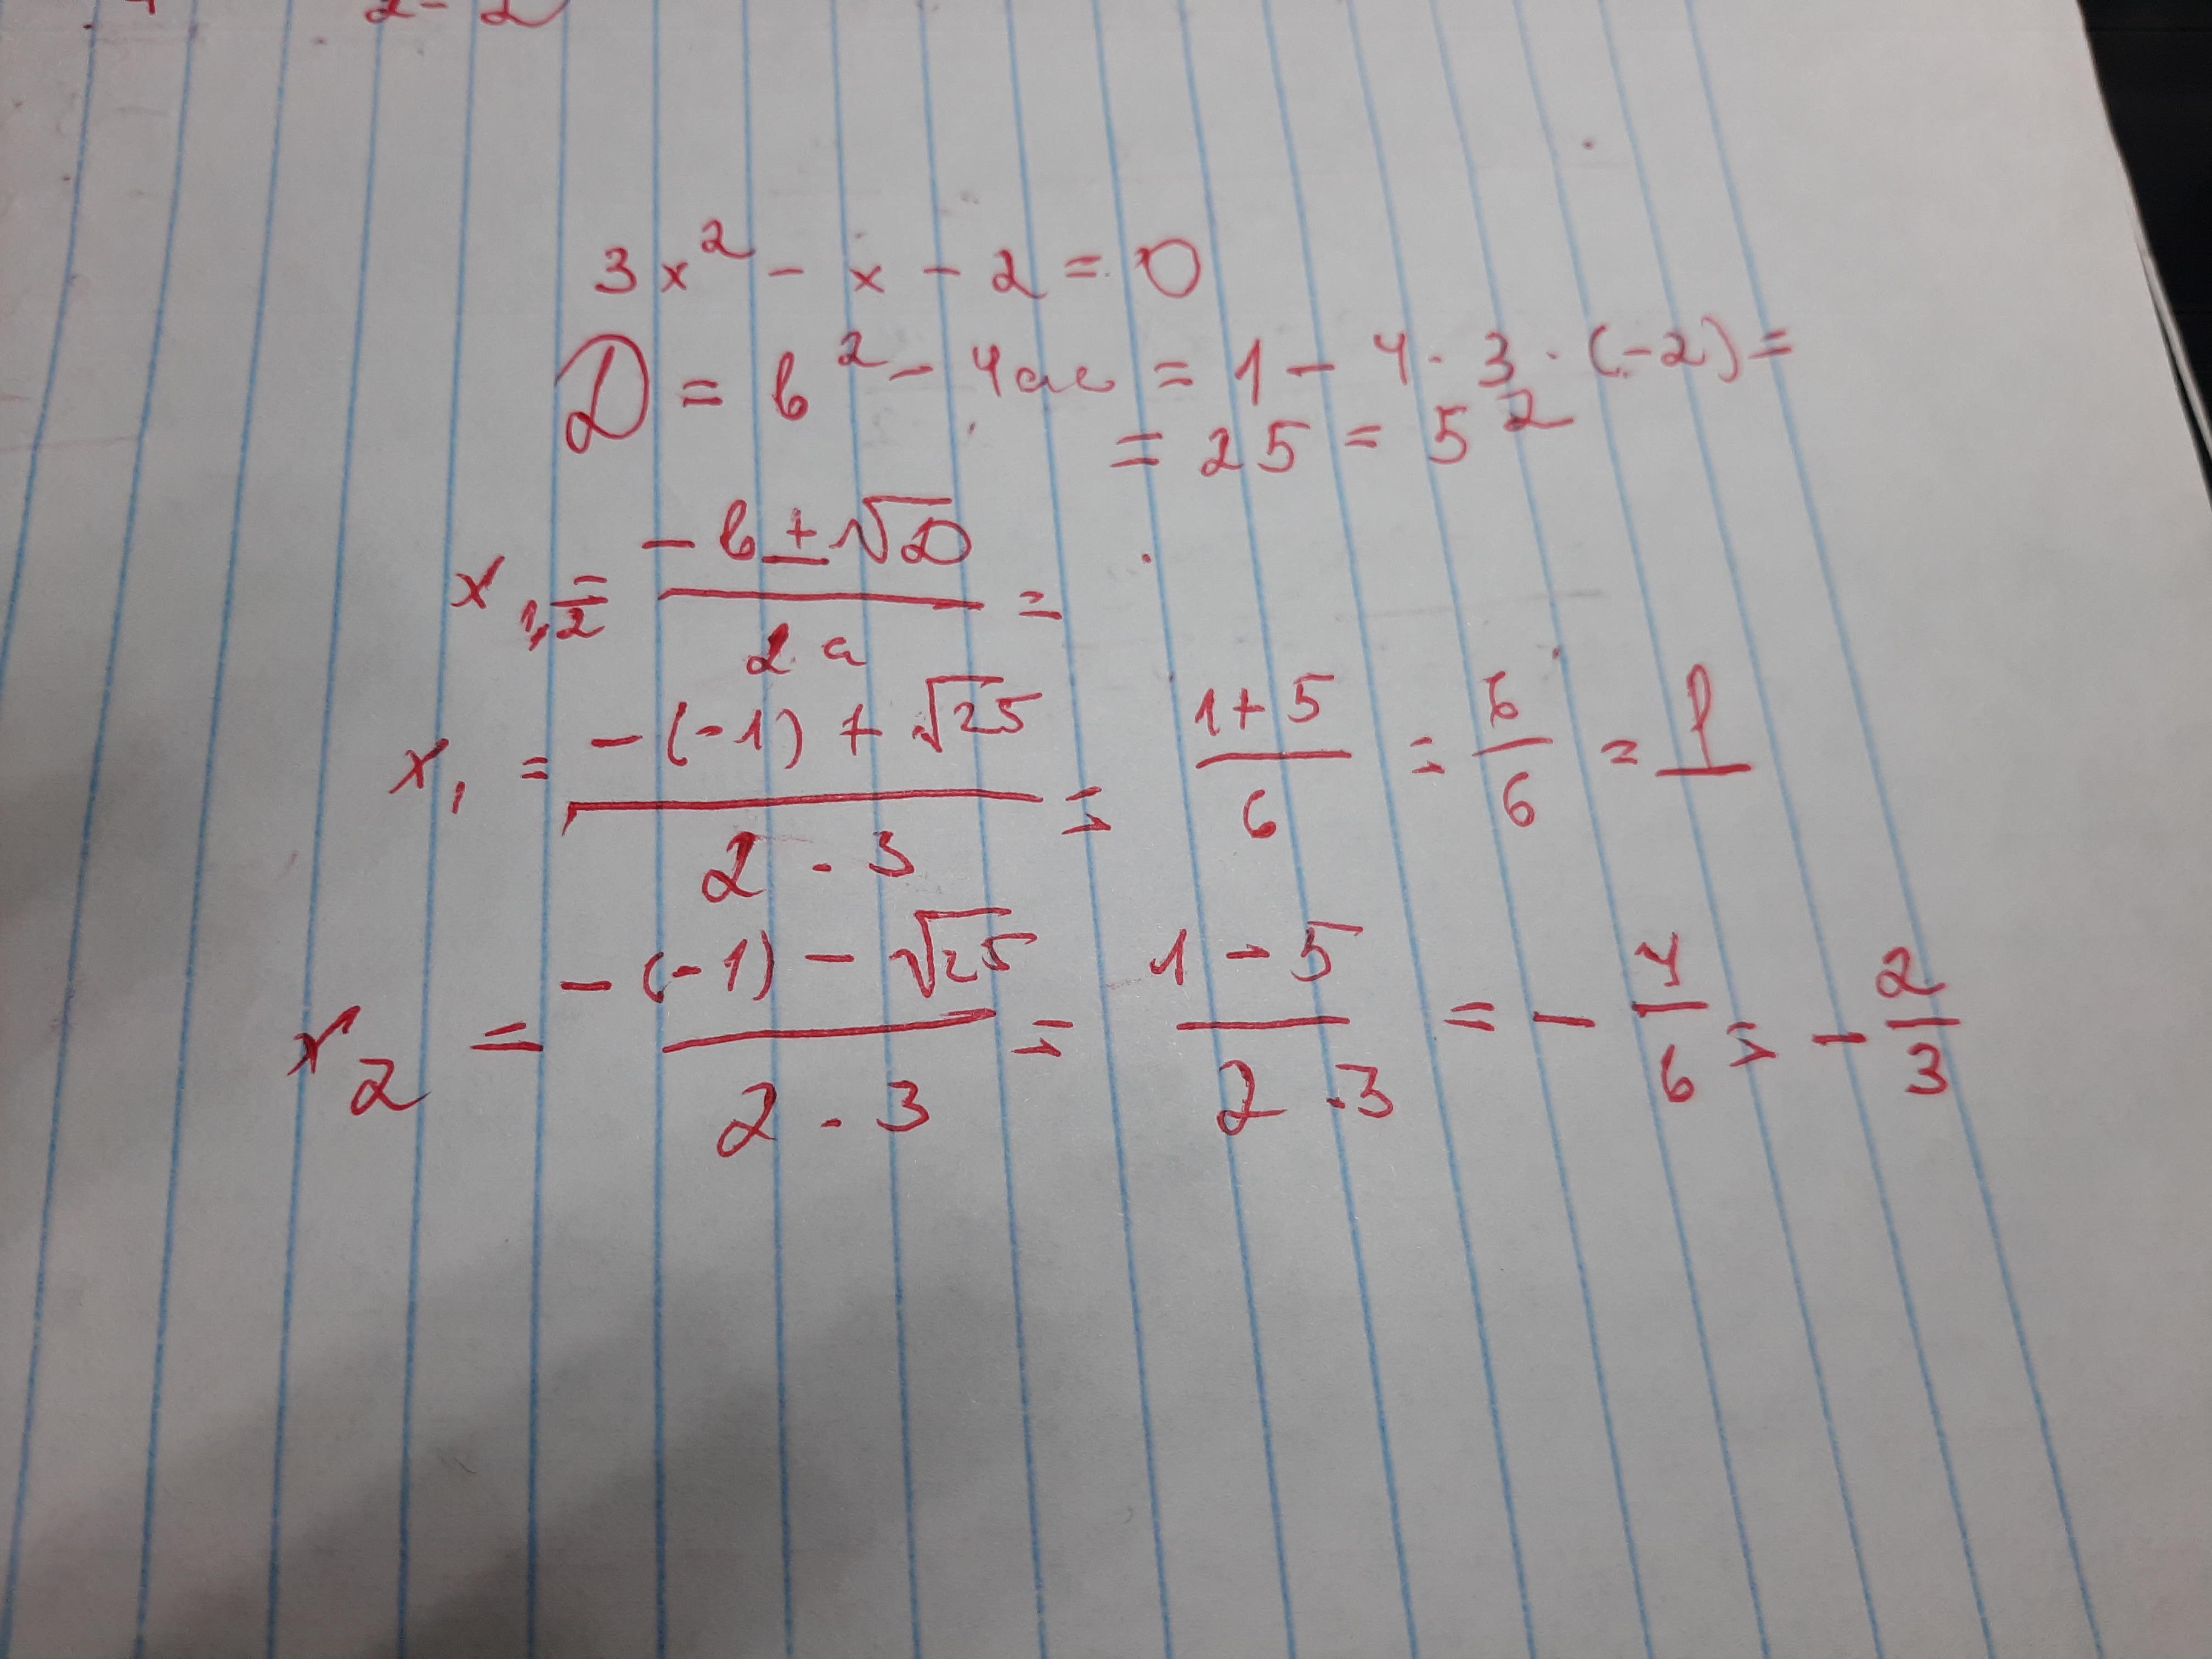 2 - 2
3x² - x - 2 = 0
D = b² - 4ac = 1 - 4 · 3 · (-2) =
= 25 = 5²
x₁,₂ = (-b ± √D) / (2a) =
x₁ = (-(-1) + √25) / (2 · 3) = (1 + 5) / 6 = 6/6 = 1
x₂ = (-(-1) - √25) / (2 · 3) = (1 - 5) / (2 · 3) = - 4/6 = - 2/3